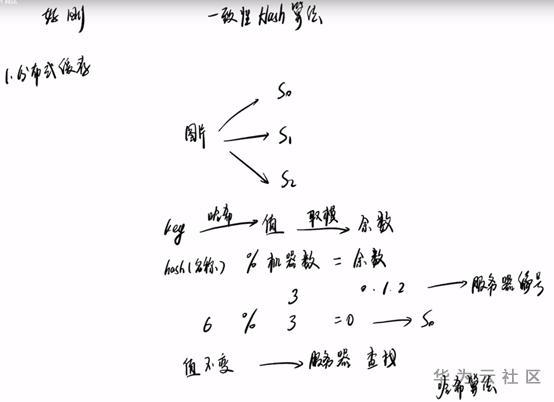 一致性Hash算法
1.分布式缓存
图片
S0
S1
S2
key 哈希 值 取模 余数
hash(名称) % 机器数 = 余数
3 0.1.2 服务器编号
6 % 3 =0 S0
值不变 服务器 查找
哈希算法
华为云社区